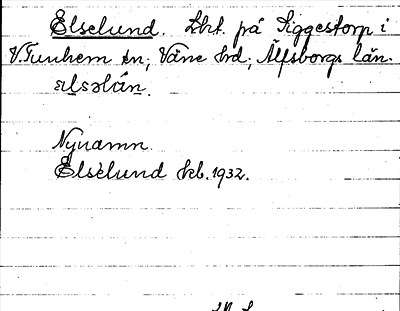 Elselund. Lht. på Siggestorp i
V. Tunhem sn; Väne hrd; Älfsborgs län.
ælsəlún.
Nynamn.
Elselund kb. 1932.